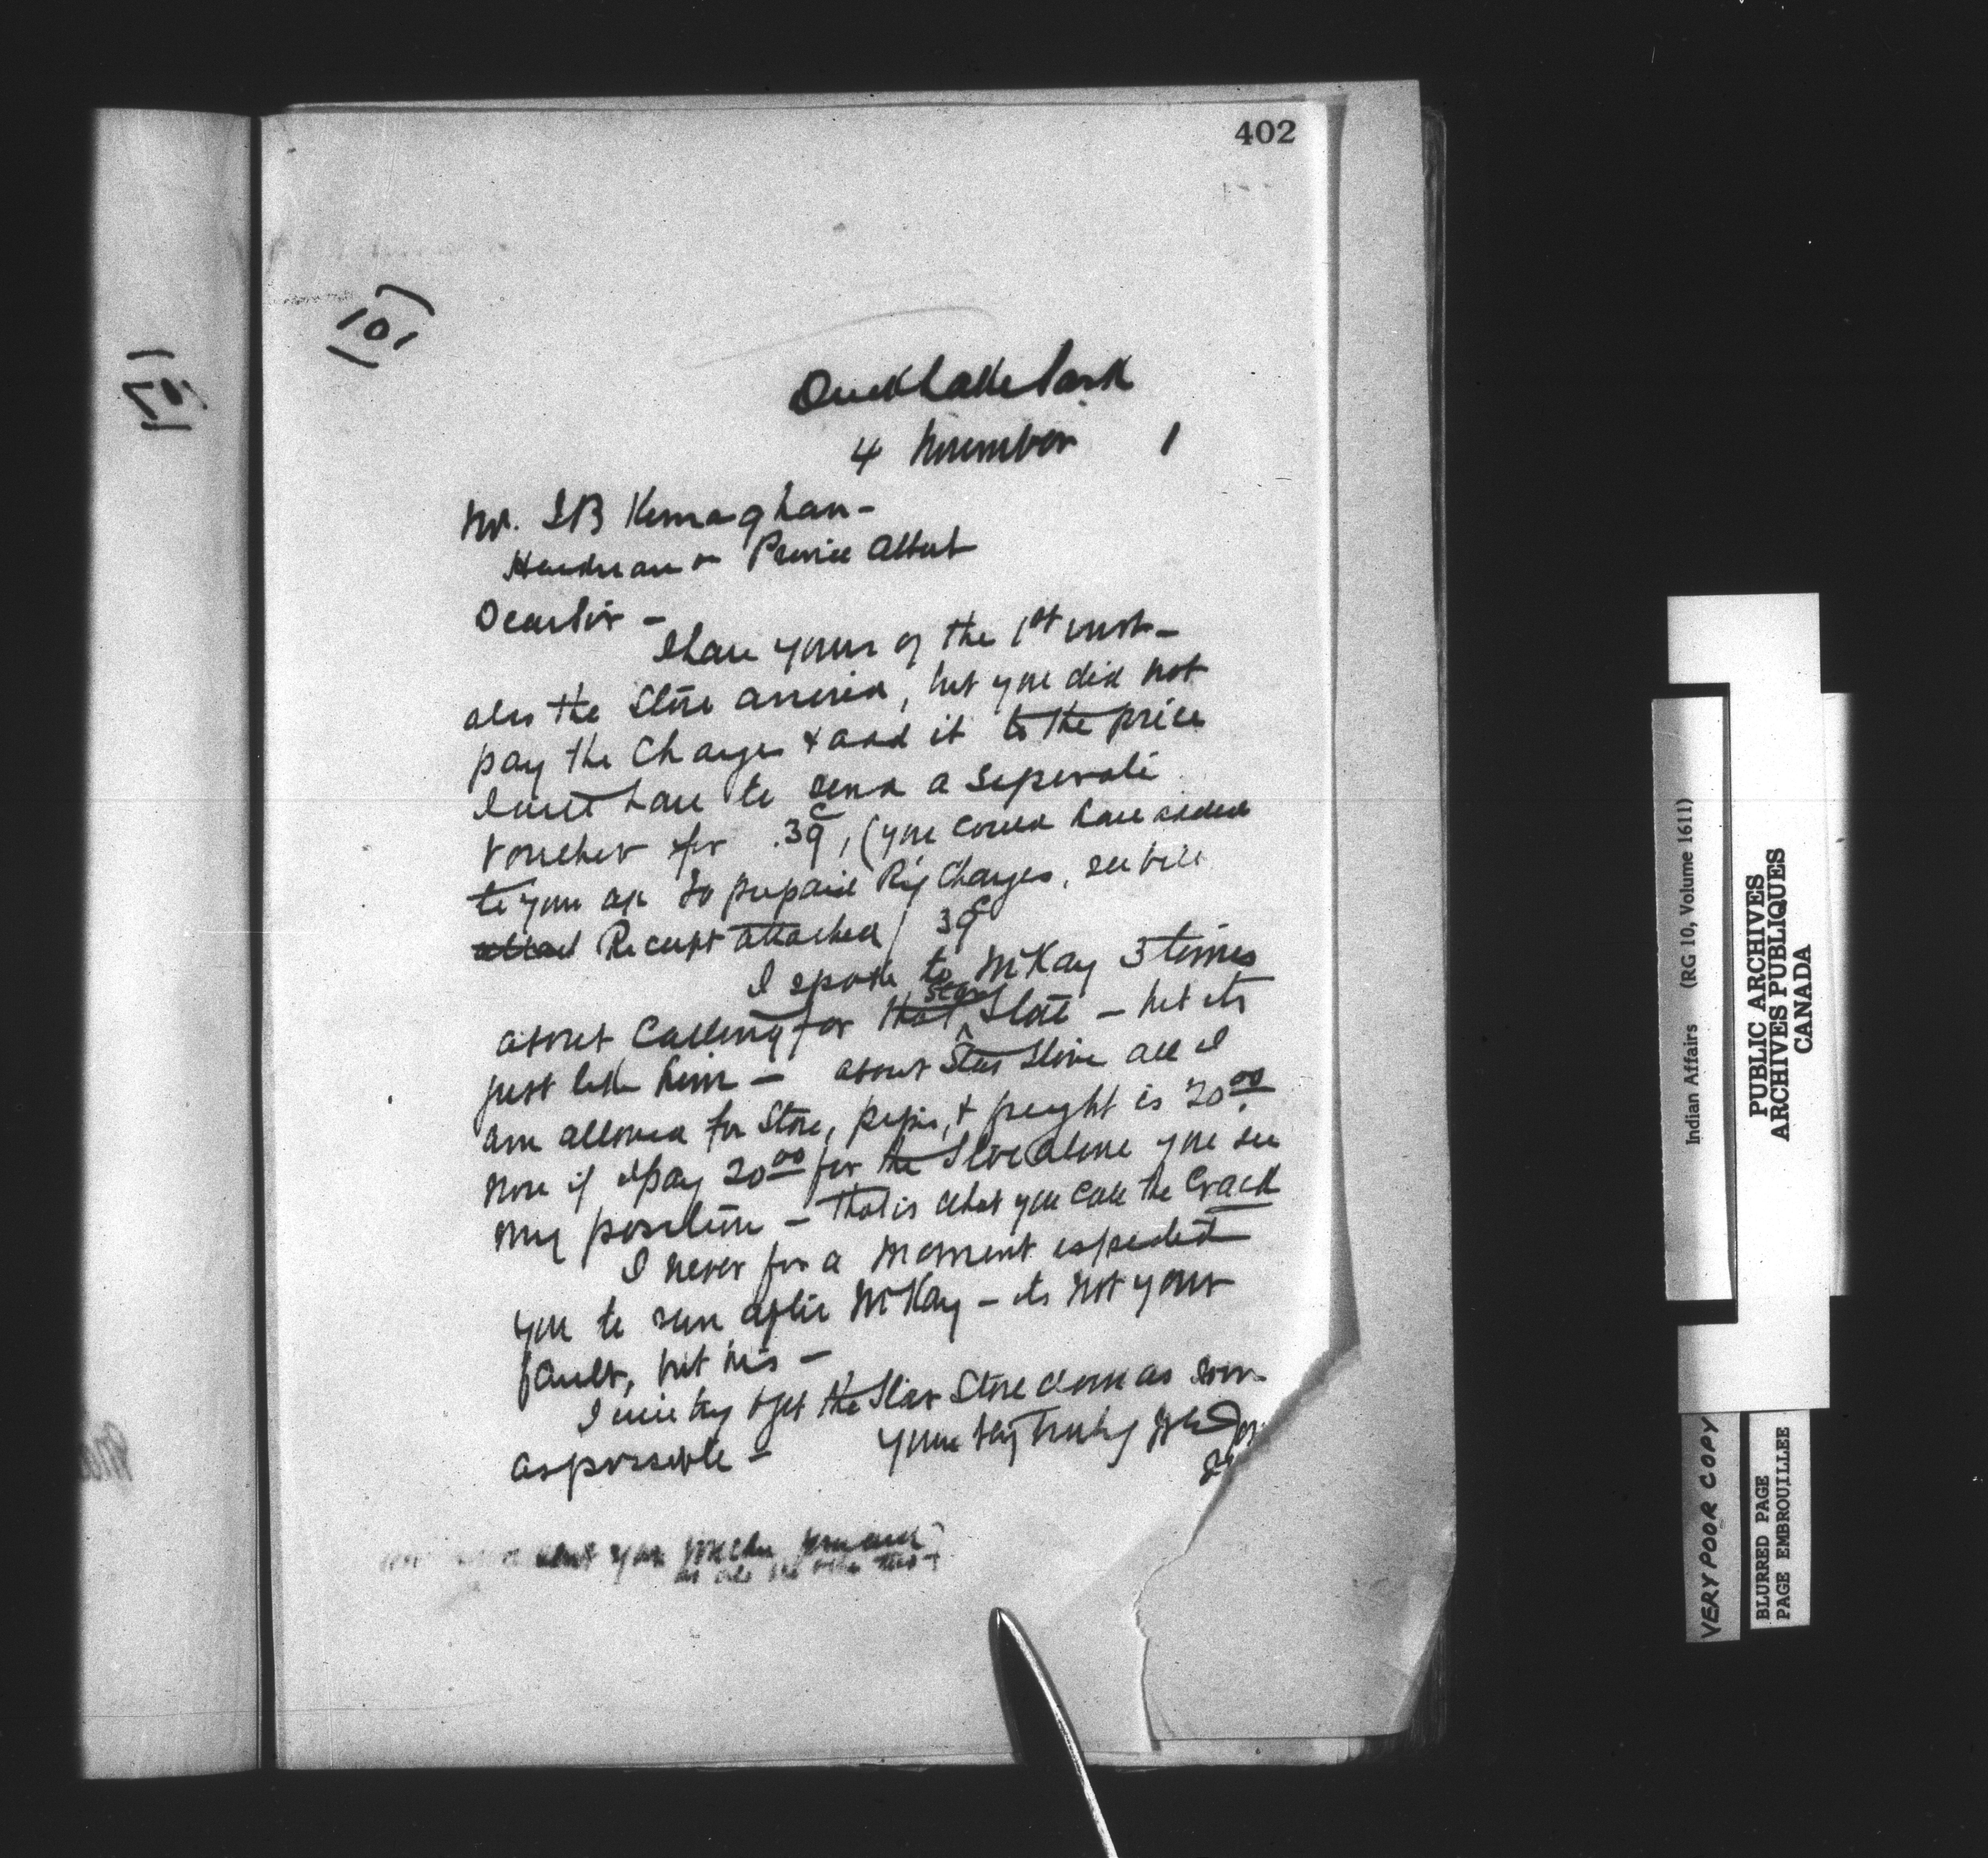 402
101
Duck Lake Sask
4 November 1
Mr. J B Kernaghan -
Hardware Prince Albert
Dear Sir -
I have yours of the 1st inst -
also the Stove arrived, but you did not
pay the Charges & add it to the price
I will have to send a seperate
voucher for .39c, (you could have added
to your a/c To prepaid Ry Charges, see bill
Receipt attached) 39c
I spoke to McKay 3 times
about Calling for that Star Stove - but its
just like him - about Star Stove all I
am allowed for Stove, pipes, & freight is 20.00
Now if I pay 20.00 for the Stove alone you see
my position - that is what you call the Crack
I never for a moment expected
you to run after McKay - its not your
fault, but his -
I will try & get the Star Stove down as soon
as possible - Yours very truly
Indian Affairs (RG 10, Volume 1611)
PUBLIC ARCHIVES
ARCHIVES PUBLIQUES
CANADA
VERY POOR COPY
BLURRED PAGE
PAGE EMBROUILLEE